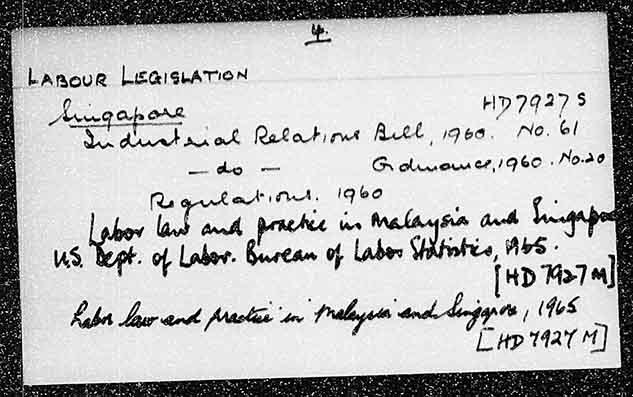 4.
LABOUR LEGISLATION
Singapore HD7927 S
Industrial Relations Bill, 1960. No. 61
— do — Ordinance, 1960. No. 20
Regulations. 1960
Labor law and practice in Malaysia and Singapore
U.S. Dept. of Labor. Bureau of Labor Statistics, 1965.
[HD 7927 M]
Labor law and practice in Malaysia and Singapore, 1965
[HD 7927 M]